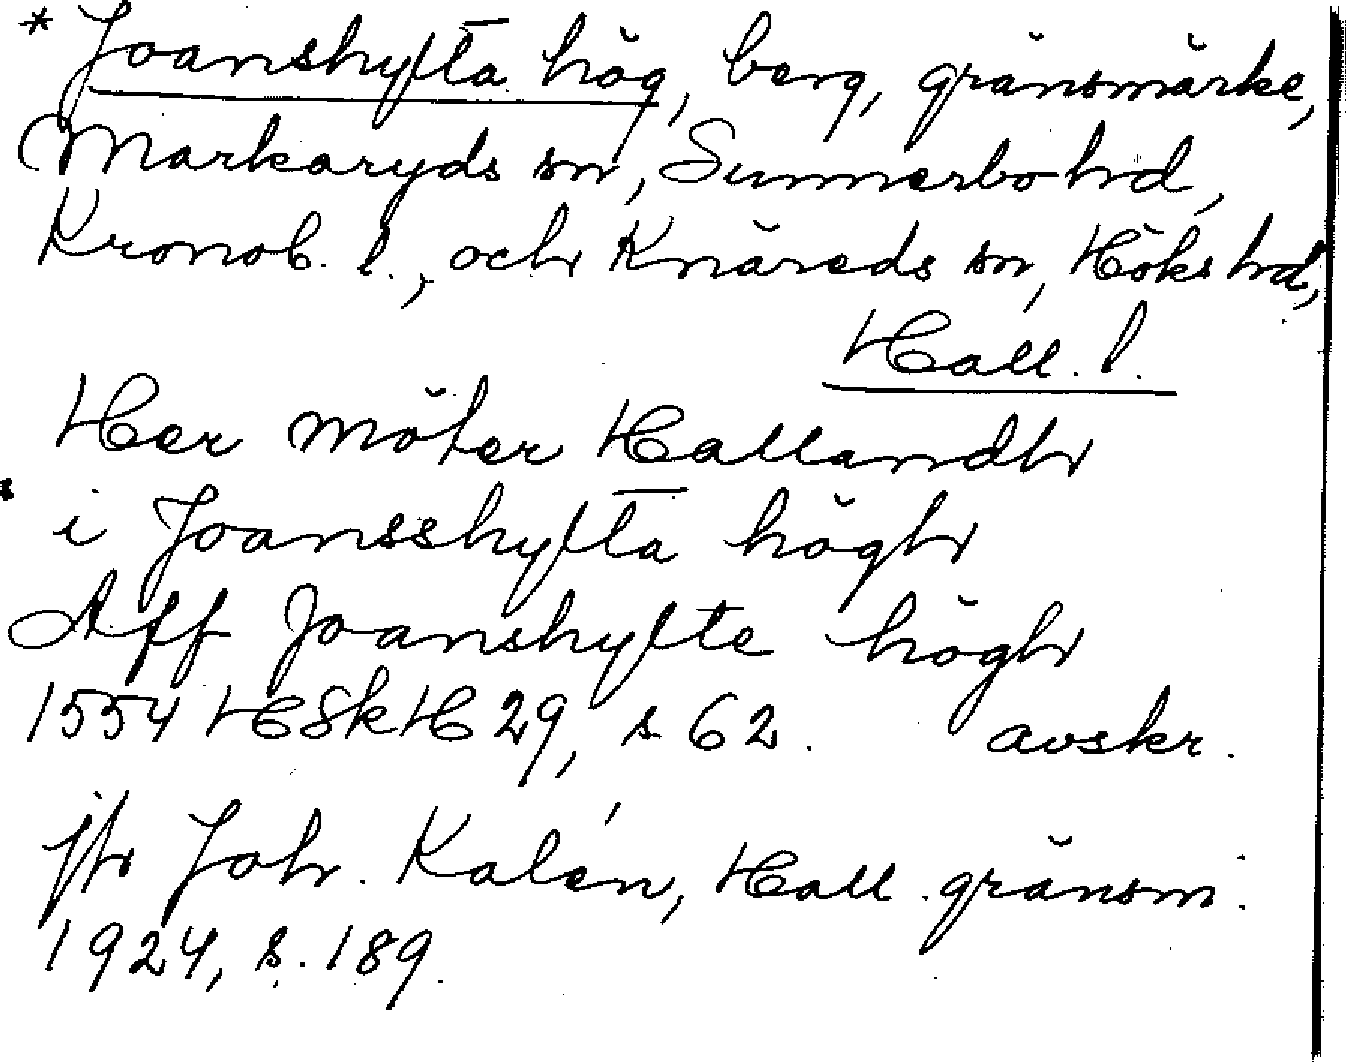 * Joanshylta hög, berg, gränsmärke,
Markaryds sn, Sunnerbo hd,
Kronob. l., och Knäreds sn, Höks hd,
Hall. l.
Her möter Hallandh
i Joansshylta högh
Aff Joanshylte högh
1554 HSkH 29, s 62. avskr.
jfr Joh. Kalén, Hall. gränsm.
1924, s. 189.